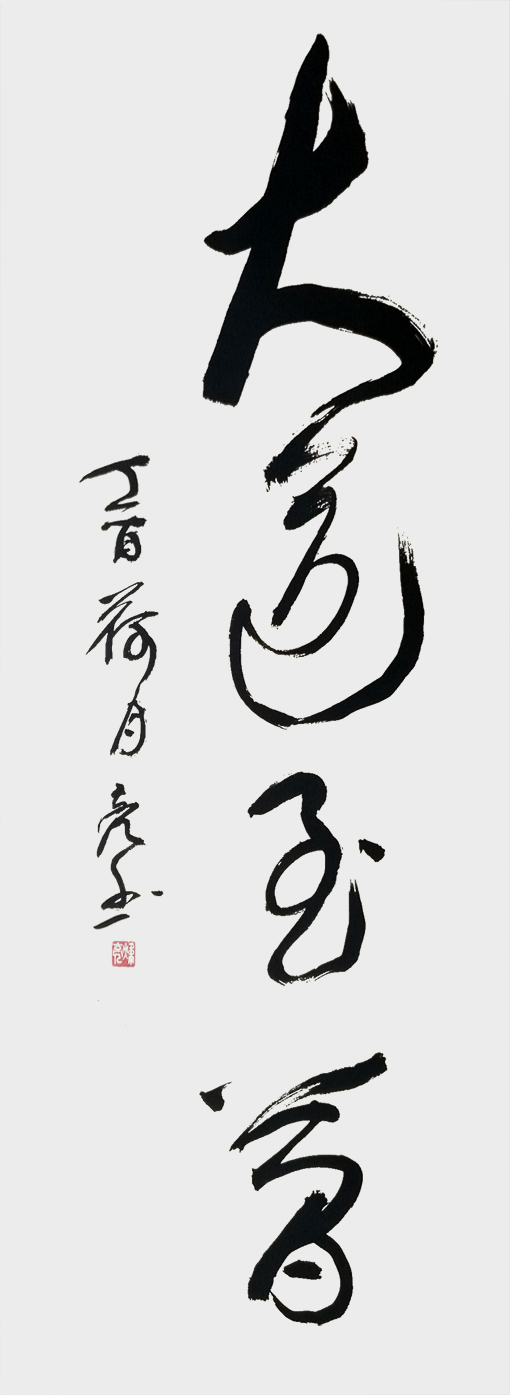 大道至簡
丁酉荷月亮